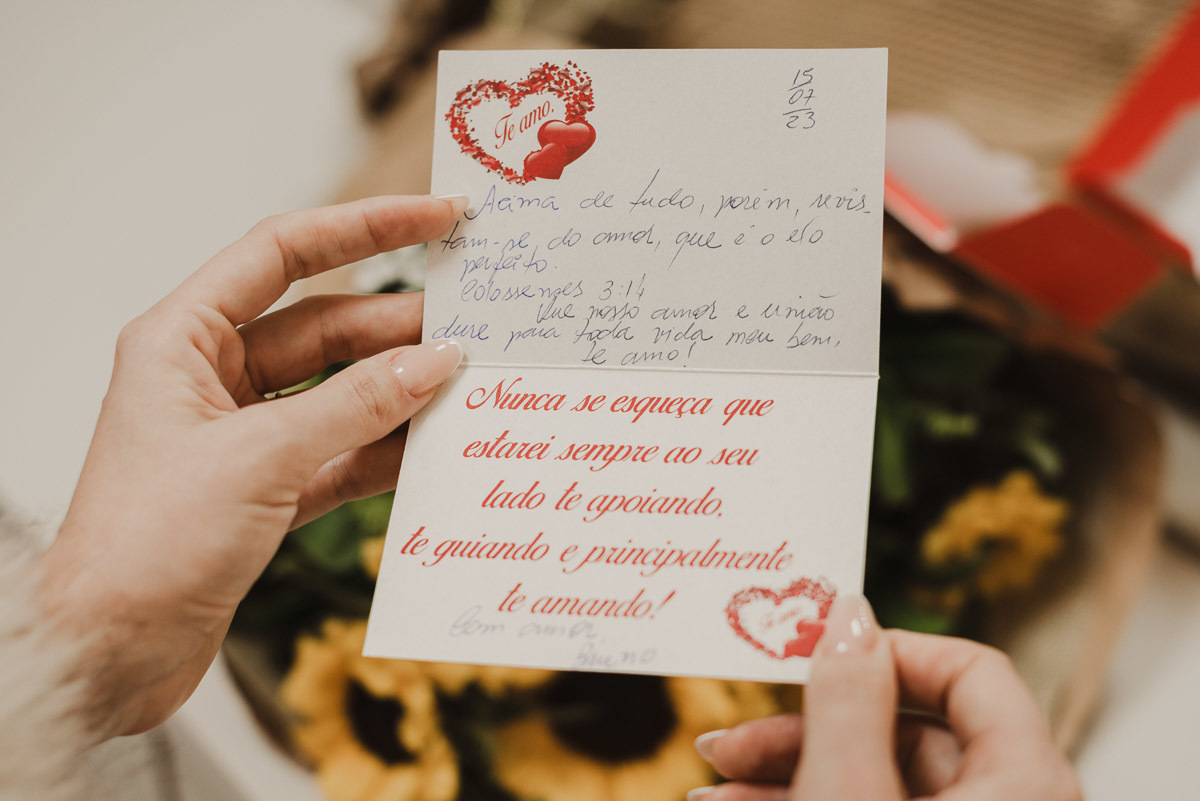 Te amo.
15
07
23
Acima de tudo, porém, revis-
tam-se, do amor, que é o elo
perfeito.
Colossenses 3:14
Que nosso amor e união
dure para toda vida meu bem,
te amo!
Nunca se esqueça que
estarei sempre ao seu
lado te apoiando,
te guiando e principalmente
te amando!
Te amo.
Com amor,
Bruno